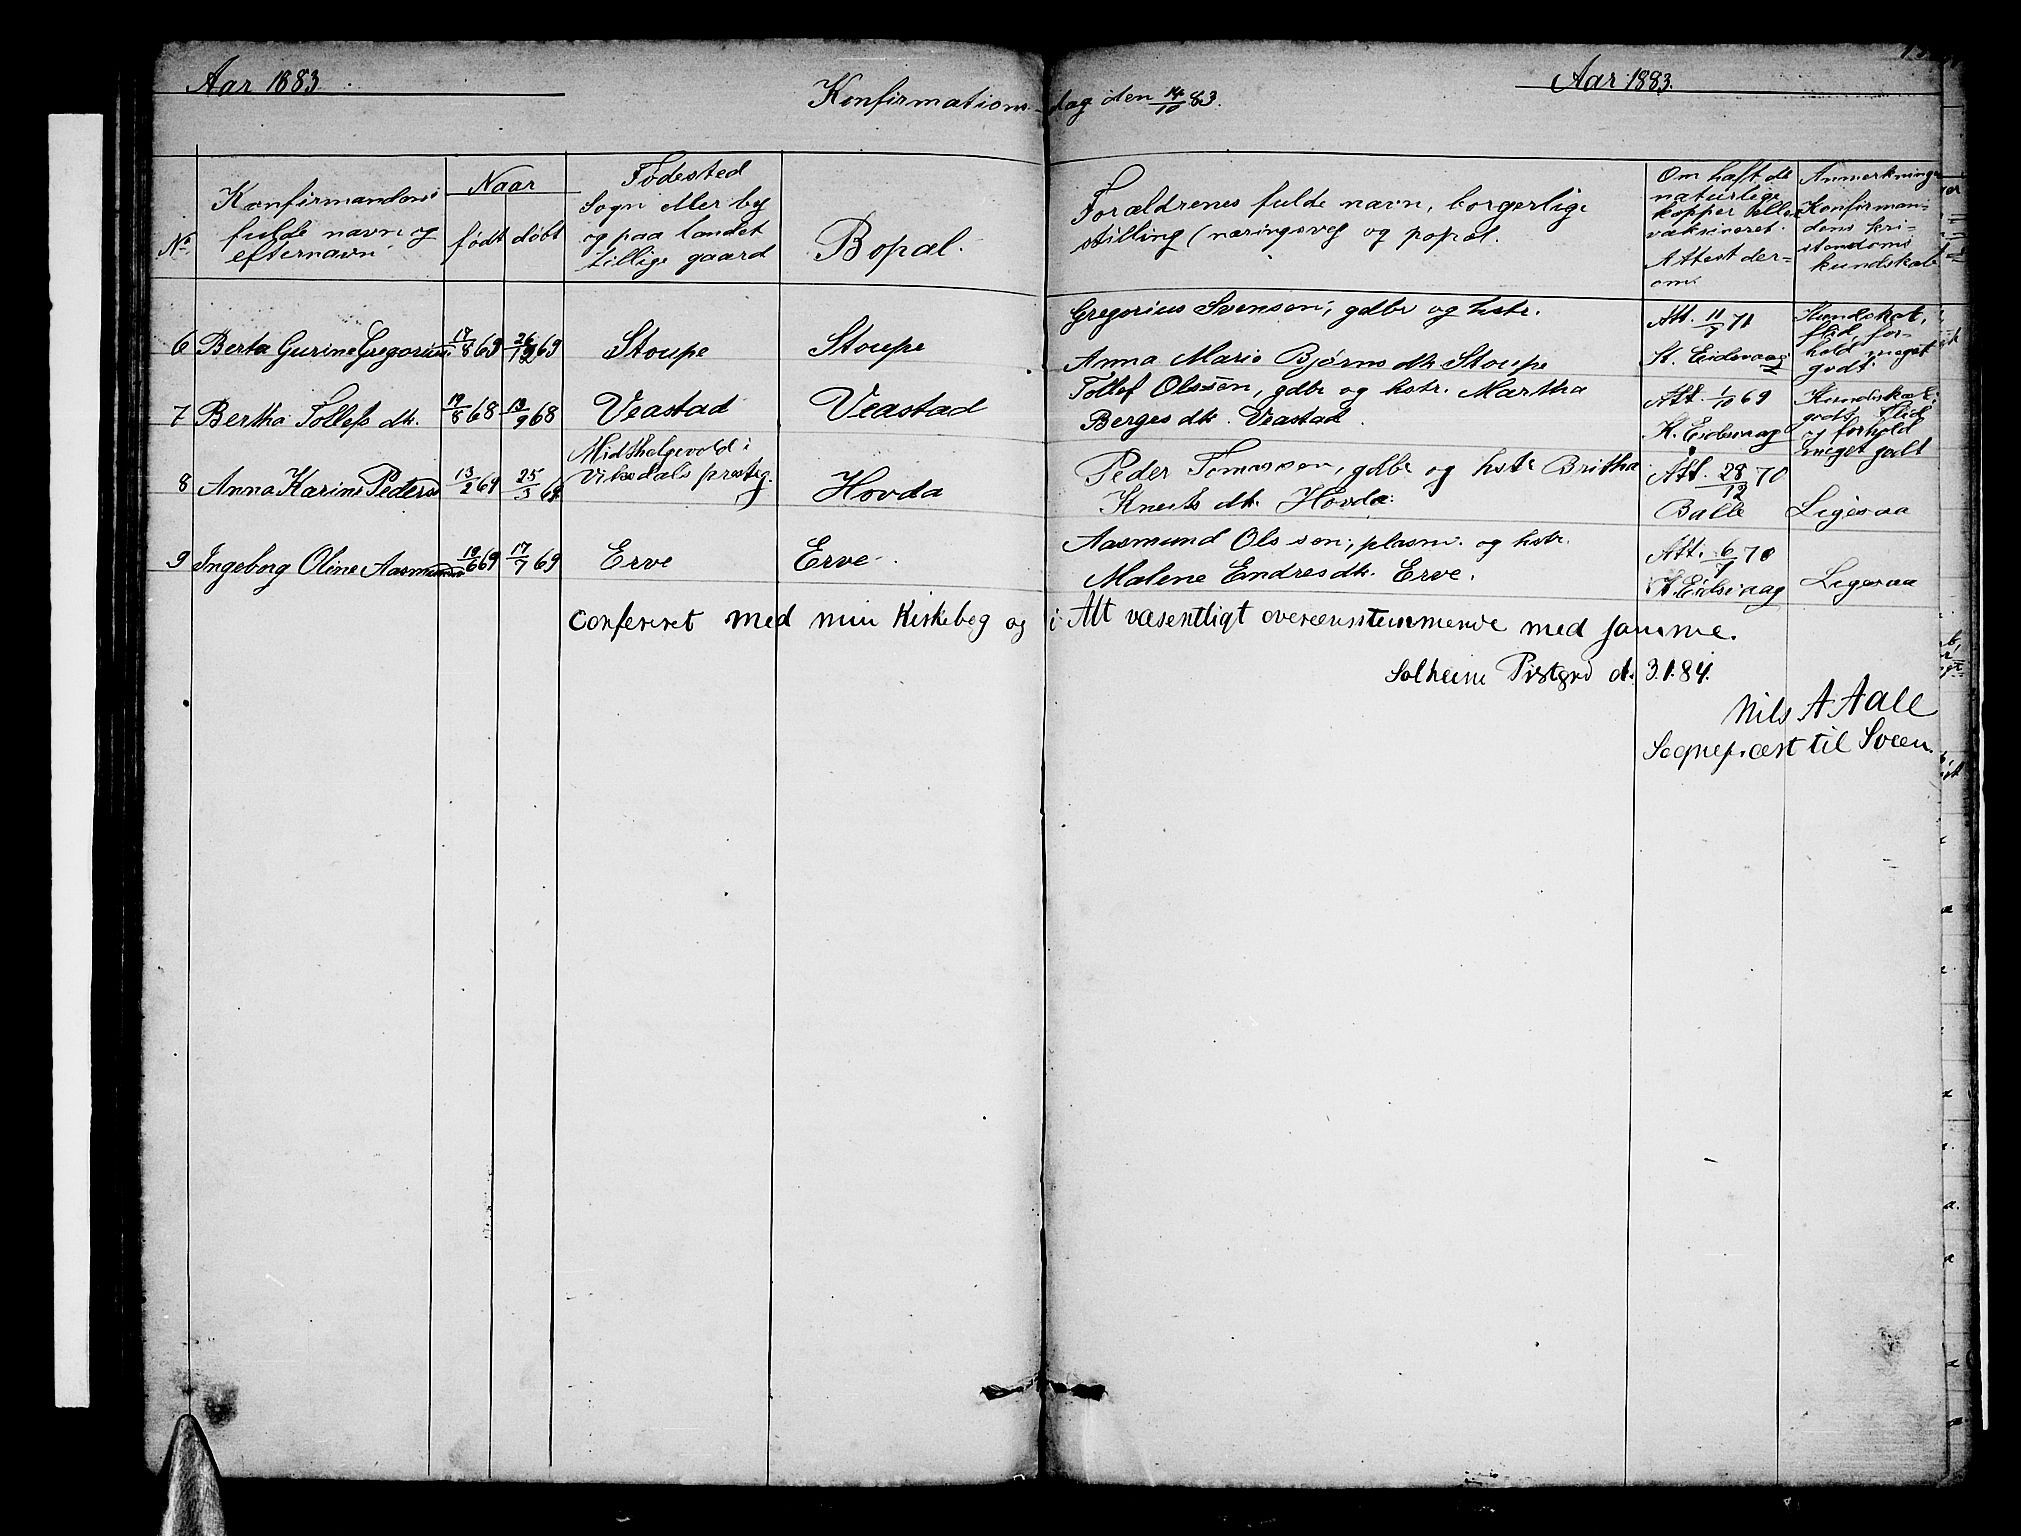 Aar 1883.
Aar 1883.
Konfirmations-dag den 14/10 83.
No.
Konfirmandens
fulde navn og
efternavn
Naar
født døbt
Fødested
Sogn eller by
og paa landet
tillige gaard
Bopæl.
Forældrenes fulde navn, borgerlige
stilling (næringsveg og popæl.
Om haft de
naturlige
kopper eller
vaksineret.
Attest der=
om.
Anmerkninger
Konfirman-
dens kri-
stendoms
kundskab
6 Berta Gurine Gregorius 17/8 69 26/12 69 Stoupe Stoupe
Gregorius Svensen, gdbr og hstr.
Anna Marie Bjørns dtr. Stoupe
Att. 11/9 71
St. Eidsvaag
Kundskab,
flid, for-
hold meget
godt.
7 Bertha Tollefs dtr. 19/8 68 13/9 68 Veastad Veastad
Tollef Olssøn, gdbr og hstr. Martha
Berges dtr. Veastad.
Att. 1/10 69
K. Eidsvaag
Kundskab:
godt, flid
og forhold
meget godt
8 Anna Karine Peders 13/2 69 25/3 69
Midthelgevold i
Vikedals presteg.
Hovda
Peder Tomassen, gdbr og hstr Britha
Knuts dtr. Hovda.
Att. 28/12 70
Balle
Ligesaa
9 Ingeborg Oline Aasmunds 19/6 69 17/7 69 Erve Erve.
Aasmund Olssøn, plasm. og hstr.
Malene Endres dtr. Erve.
Att. 6/7 70
K. Eidsvaag
Ligesaa
Confereret med min Kirkebog og i Alt væsentligt overensstemmende med samme.
Solheim Præstgrd d. 3.1.84.
Nils A Aall
Sognepræst til Sveen.